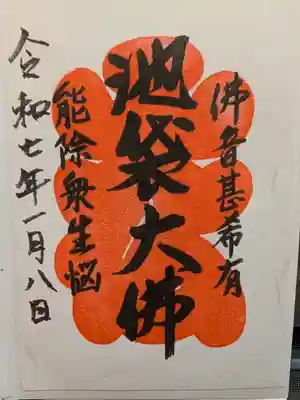 佛音甚希有
池袋大佛
能除衆生悩
令和七年一月八日